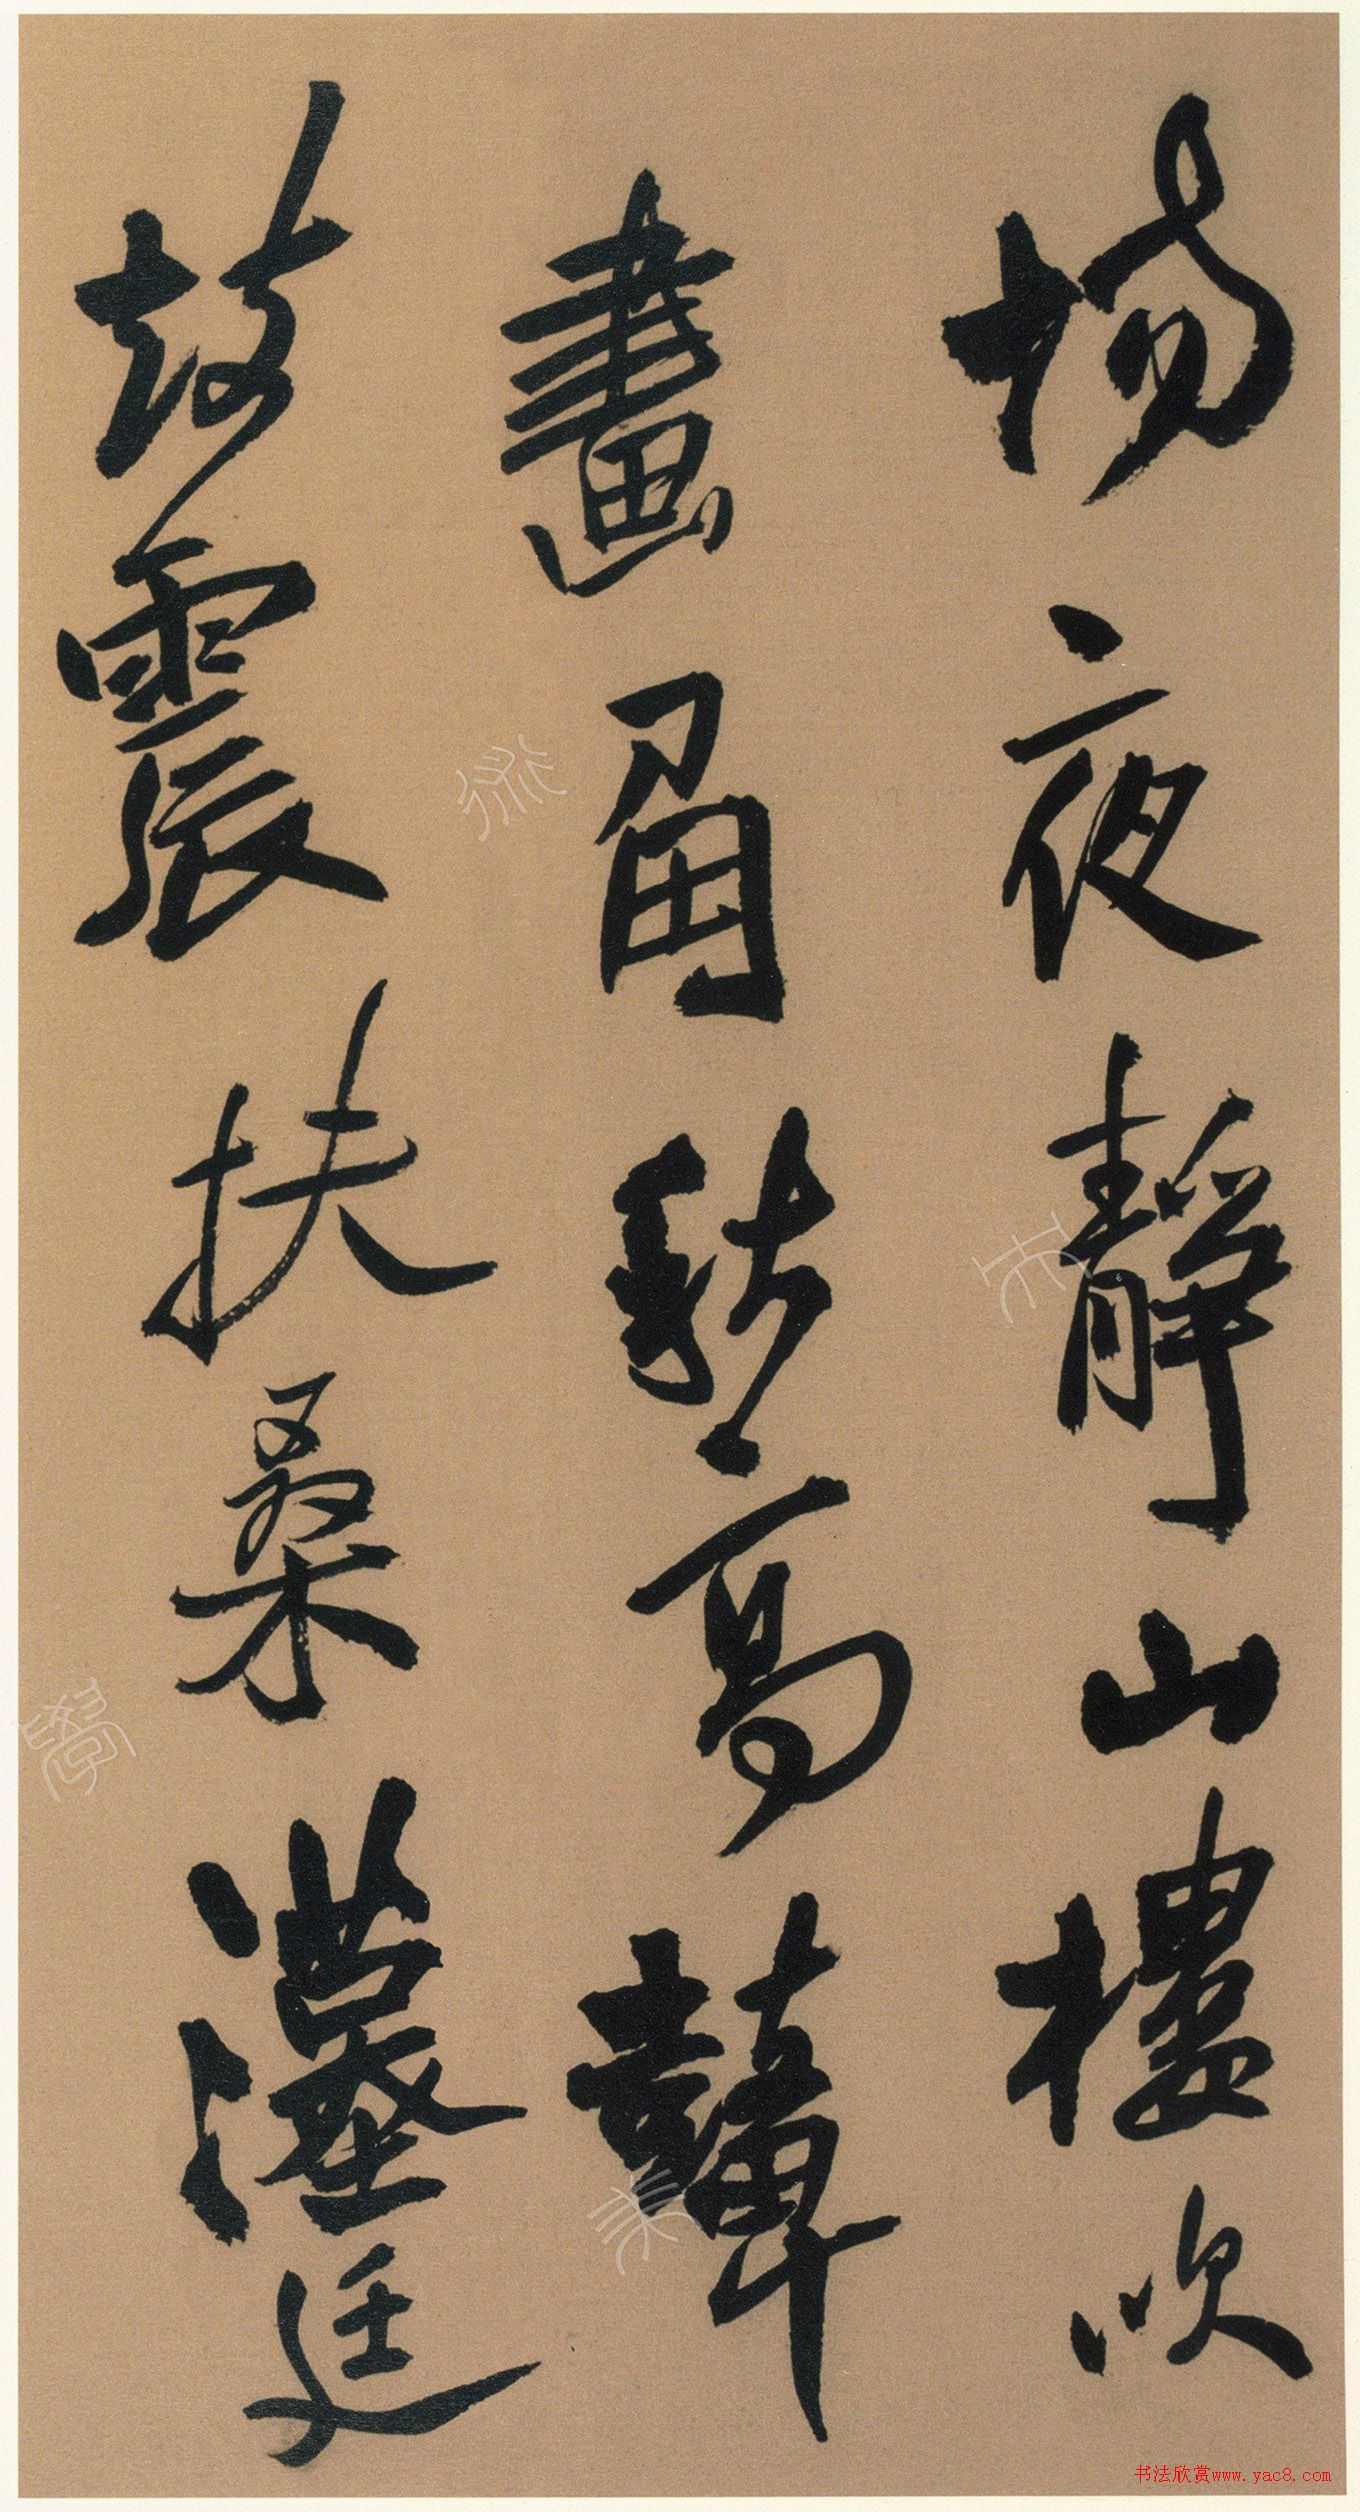 場夜靜山樓吹
畫角秋高鼙
鼓震扶桑漢廷
书法欣赏www.yac8.com